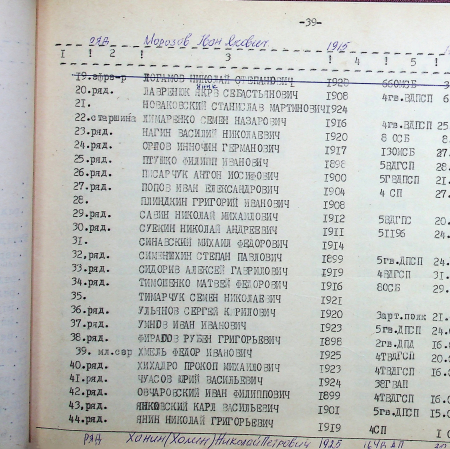 -39-
ряд Морозов Иван Яковлевич 1915
1 ! 2 ! 3 ! 4 ! 5 !
19. ефре-р ЛОГАМОВ НИКОЛАЙ СТЕПАНОВИЧ 1926 660МЗБ 3
20.ряд. ЛАВРЕНЮК ЯКОВ СЕБАСТЬЯНОВИЧ 1908 4гв.ВДПСП 6.
21. НОВАКОВСКИЙ СТАНИСЛАВ МАРТИНОВИЧ 1924
22.старшина ЛИМАРЕНКО СЕМЕН НАЗАРОВИЧ 1916 4гв.ВДПСП 25.
23.ряд. НАГИН ВАСИЛИЙ НИКОЛАЕВИЧ 1920 8 ОСБ 8.
24.ряд. ОРЛОВ ИННОЧИН ГЕРМАНОВИЧ 1917 130МСБ 27.
25.ряд. ПТУШКО ФИЛИПП ИВАНОВИЧ 1898 5ВДГСП 26.
26.ряд. ПИСАРЧУК АНТОН ИОСИФОВИЧ 1900 5ГВДПСП 21.
27.ряд. ПОПОВ ИВАН АЛЕКСАНДРОВИЧ 1904 4 СП 27.
28. ПЛИНДКИН ГРИГОРИЙ ИВАНОВИЧ 1908
29.ряд. САВИН НИКОЛАЙ МИХАЙЛОВИЧ 1912 5ВДГПС 20.
30.ряд. СУЕКИН НИКОЛАЙ АНДРЕЕВИЧ 1911 51196 24.
31. СИНАВСКИЙ МИХАИЛ ФЕДОРОВИЧ 1914
32.ряд. СИМЕНИХИН СТЕПАН ПАВЛОВИЧ 1899 5гв.ДПСП 24.
33.ряд. СИДОРИВ АЛЕКСЕЙ ГАВРИЛОВИЧ 1919 4ВДГСП 31.
34.ряд. ТИМОШЕНКО МАТВЕЙ ФЕДОРОВИЧ 1916 8ОСБ 29.
35. ТИМАРЧУК СЕМЕН НИКОЛАЕВИЧ 1921
36.ряд. УЛЬЯНОВ СЕРГЕЙ КИРИЛОВИЧ 1920 3арт.полк 21.
37.ряд. УМНОВ ИВАН ИВАНОВИЧ 1923 5гв.ДПСП 24.
38.ряд. ФИРАДОВ РУБЕН ГРИГОРЬЕВИЧ 1898 2гв.ДПД 16.
39. мл.сер ХМЕЛЬ ФЕДОР ИВАНОВИЧ 1925 4ТВДГСП 20.
40.ряд. ХИХАДРО ПРОКОП МИХАЙЛОВИЧ 1923 4ТВДГСП 16.
41.ряд. ЧУАСОВ ЮРИЙ ВАСИЛЬЕВИЧ 1924 38ГВАП
42.ряд. ОВЧАРОВСКИЙ ИВАН ФИЛИППОВИЧ 1899 4ТВДГСП 16.
43.ряд. ЯНКОВСКИЙ КАРЛ ВАСИЛЬЕВИЧ 1901 5гв.ДПСП 15.
44.ряд. ЯНИН НИКОЛАЙ ГРИГОРЬЕВИЧ 1919 4СП
ряд Ханин(Хомен)Николай Петрович 1925